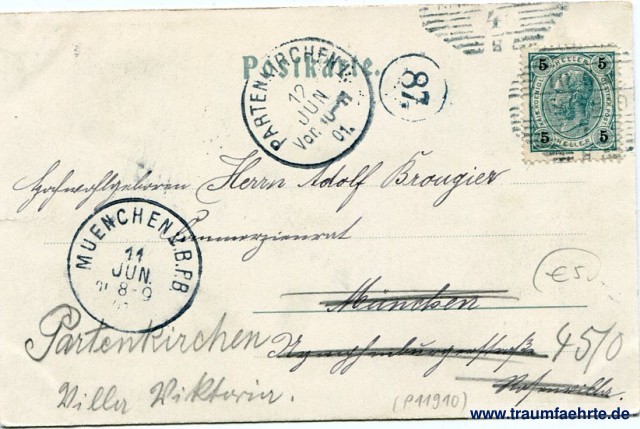 Postkarte.
PARTENKIRCHEN
12
JUN
Vor. 10
01.
87.
4
5 5
HELLER
5 5
Hochwohlgeboren Herrn Adolf Brougier
Commerzienrat
MUENCHEN 2. B.P.B
11
JUN.
8-9
München
Nymphenburgerstraße 45/0
Partenkirchen
Villa Viktoria.
€50
(P11910)
www.traumfaehrte.de